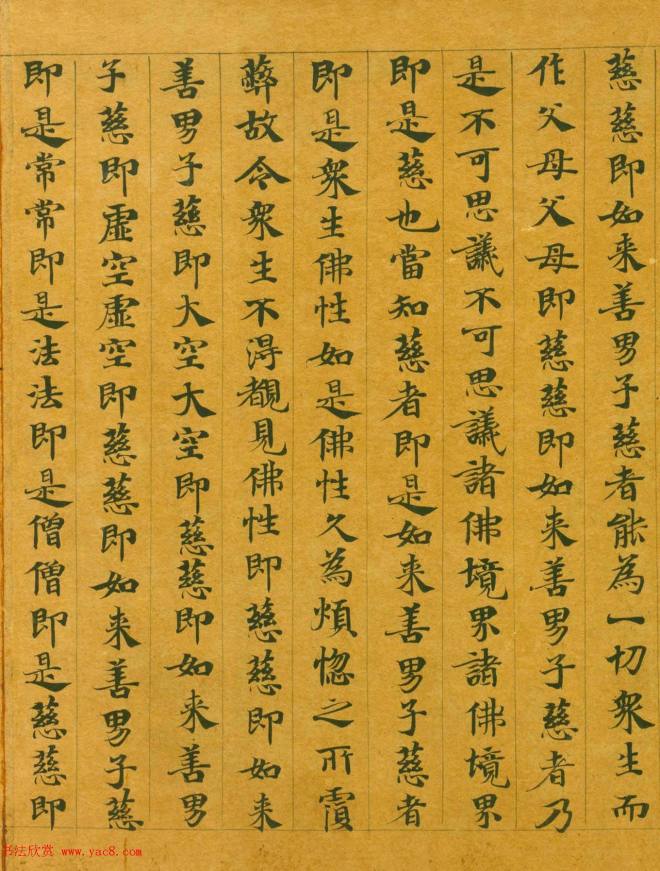 慈慈即如来善男子慈者能為一切衆生而
作父母父母即慈慈即如来善男子慈者乃
是不可思議不可思議諸佛境界諸佛境界
即是慈也當知慈者即是如来善男子慈者
即是衆生佛性如是佛性久為煩惚之所覆
蔽故令衆生不淂覩見佛性即慈慈即如来
善男子慈即大空大空即慈慈即如来善男
子慈即虚空虚空即慈慈即如来善男子慈
即是常常即是法法即是僧僧即是慈慈即
书法欣赏 www.yac8.com